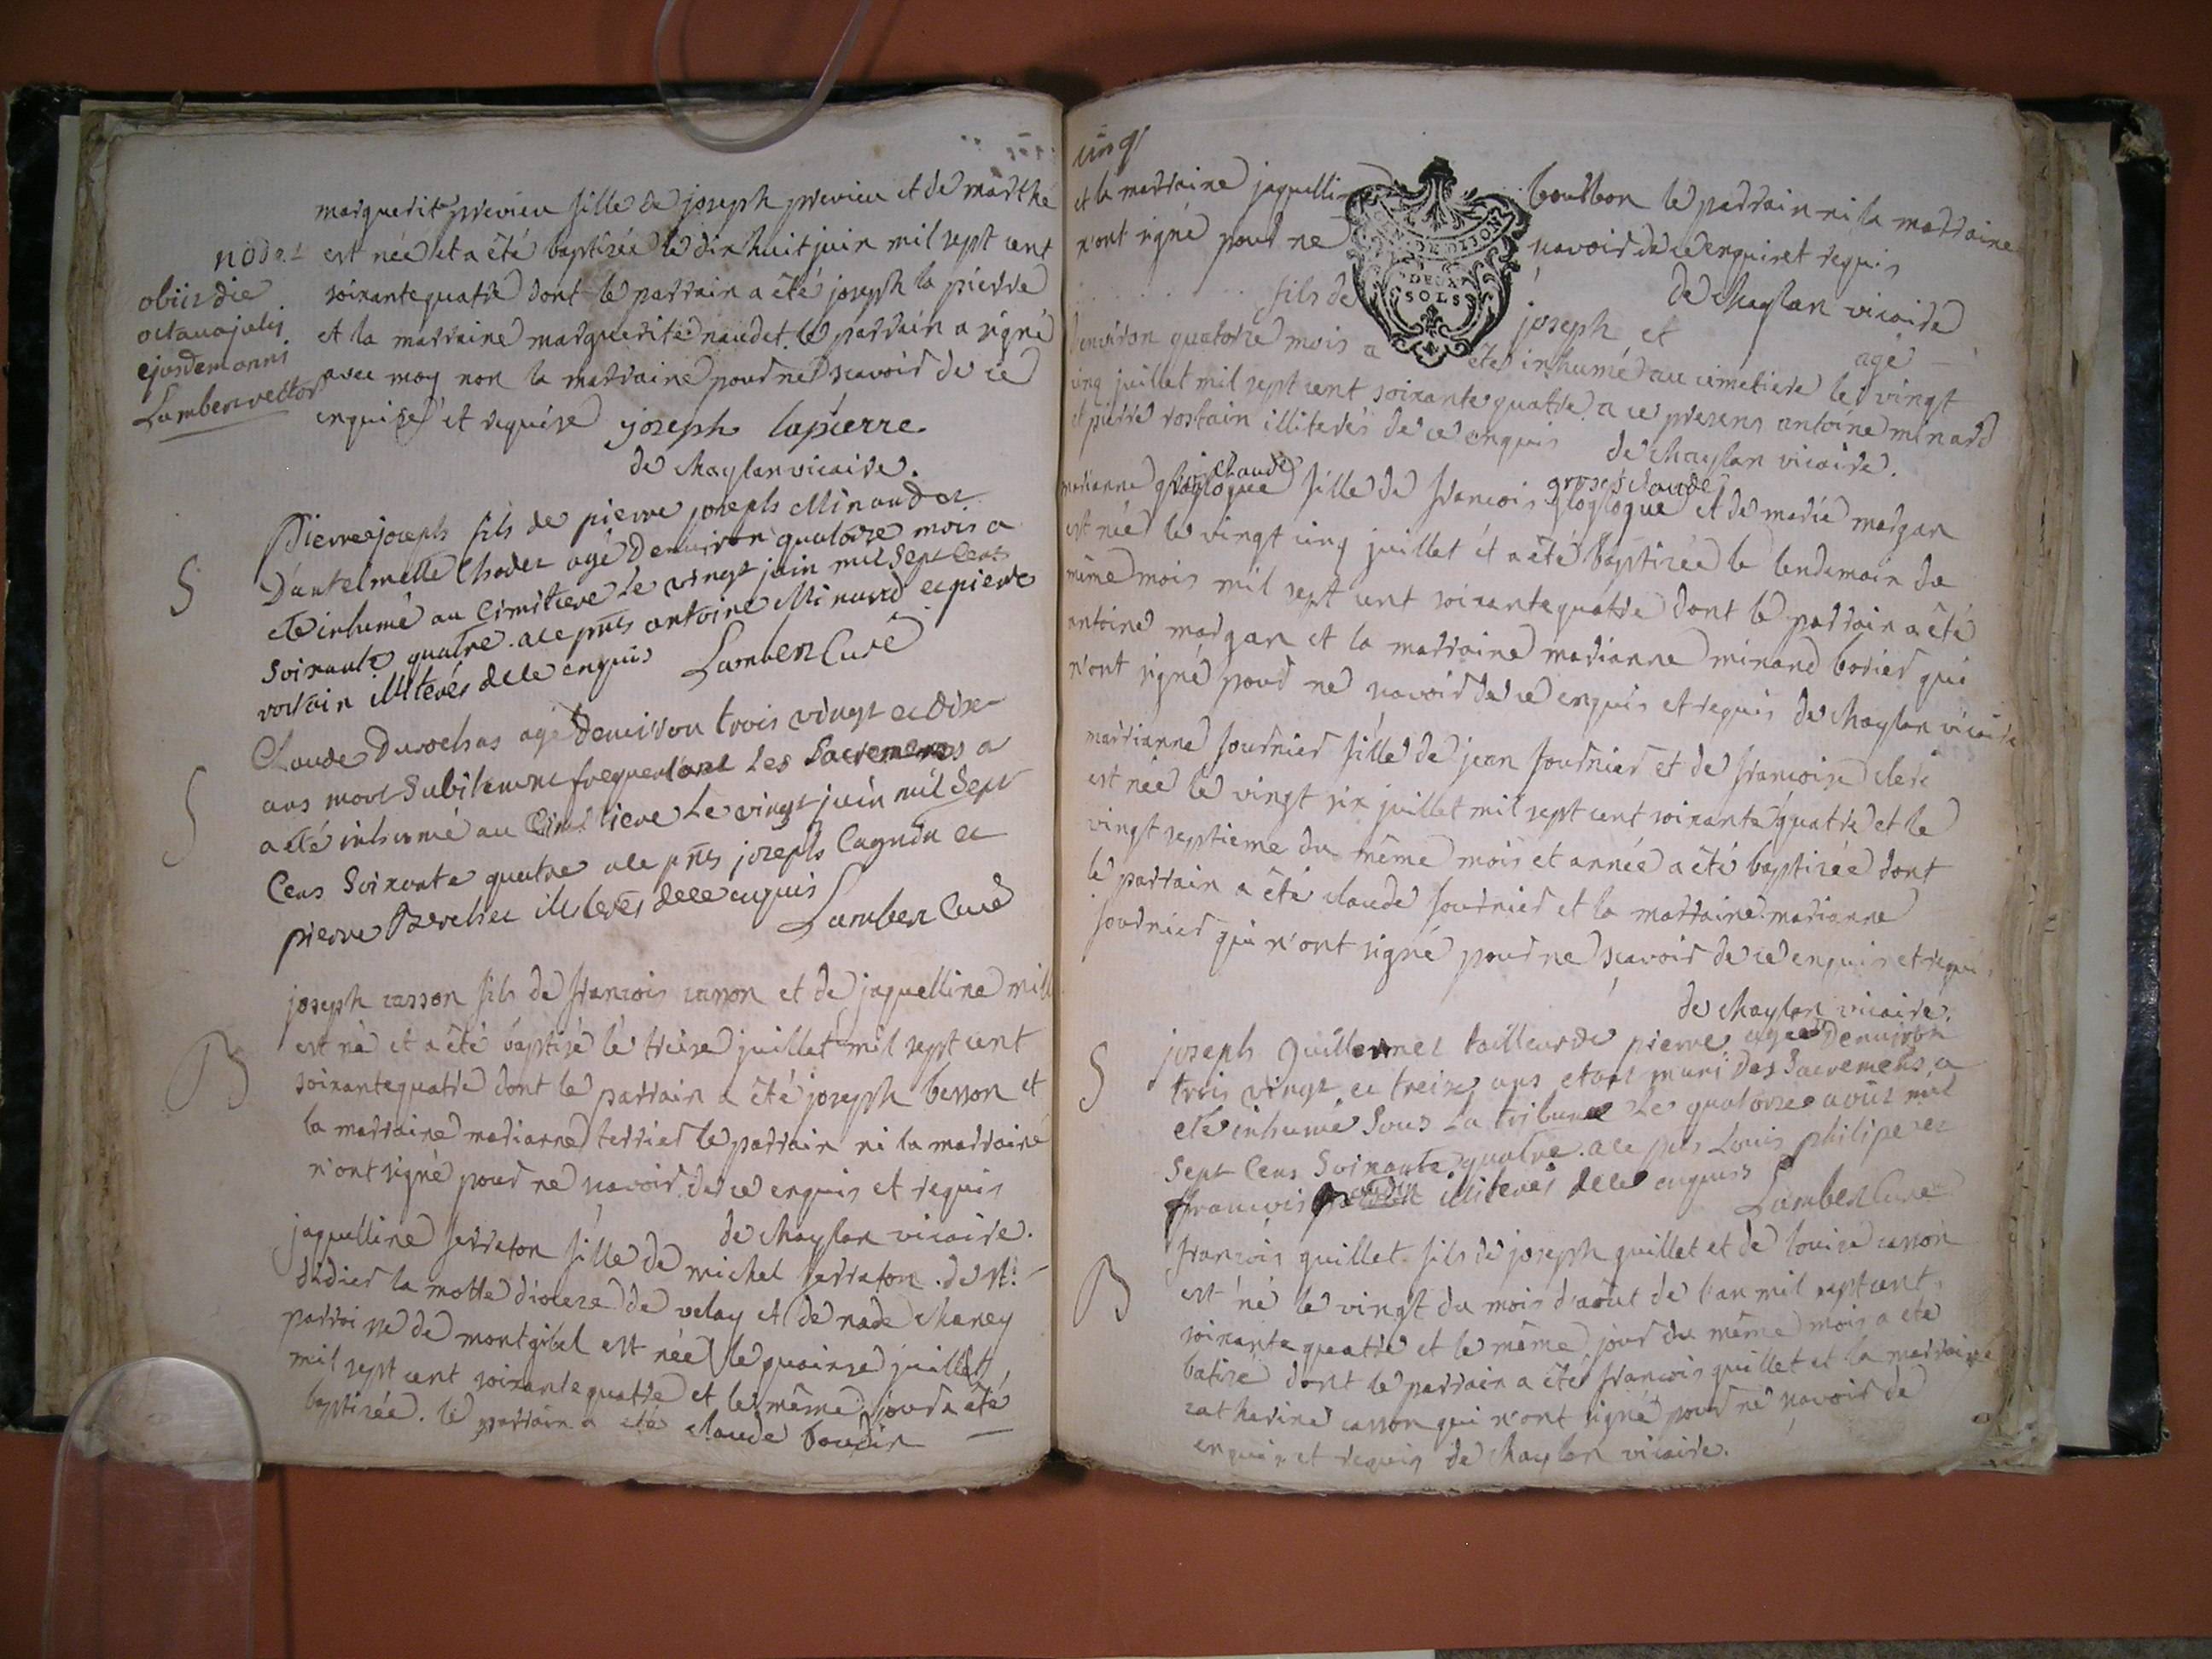 marguerite previeu fille de joseph previeu et de marthe
nodet est née et a été baptisée le dix huit juin mil sept cent
soixante quatre dont le parrain a été joseph la pierre
et la marraine marguerite naudet. le parrain a signé
avec moy non la marraine pour ne scavoir de ce
enquise et requise joseph lapierre.
de chaylan vicaire.
obiit die
octava julij
ejusdem anni
Lambert rector
S
Pierre joseph fils de pierre joseph Minaud et
Dantelmette Chodet agé Denviron quatorze mois a
eté inhumé au Cimitiere le vingt juin mil Sept Cent
Soixante quatre. a ce pnts antoine Minard et pierre
rostain illiterés de ce enquis Lambert Curé
S
Claude Durochas agé Denviron trois vingt et Dix
ans mort Subitement frequentant Les Sacremens a
a été inhumé au Cimitiere Le vingt juin mil Sept
Cens Soixante quatre a ce pnts joseph Cagndu et
pierre illiterés de ce enquis Lambert Curé
B
joseph casson fils de francois casson et de jaquelline mill
est né et a été baptisé le treize juillet mil sept cent
soixante quatre dont le parrain a été joseph besson et
la marraine marianne terrier le parrain ni la marraine
n'ont signé pour ne scavoir de ce enquis et requis
de chaylan vicaire.
jaquelline serraton fille de michel serraton. de st.
didier la motte diocese de velay et de nade chaney
parroisse de montgibel est née le quainze juillet
mil sept cent soixante quatre et le même jour a été
baptisée. le parrain a été claude boudin
cinq
et la marraine jaquelline bourbon le parrain ni la marraine
n'ont signé pour ne scavoir de ce enquis et requis
de chaylan vicaire
DE DIJON
DEUX
SOLS
fils de joseph et agé
d'environ quatorze mois a été inhumé au cimetiere le vingt
cinq juillet mil sept cent soixante quatre a ce presens antoine minard
et pierre rostain illiterés de ce enquis de chaylan vicaire.
marianne grosclaude fille de francois grosclaude et de marie margan
est née le vingt cinq juillet et a été baptisée le lendemain du
même mois mil sept cent soixante quatre dont le parrain a été
antoine margan et la marraine marianne minard borier qui
n'ont signé pour ne scavoir de ce enquis et requis de chaylan vicaire
marrianne fournier fille de jean fournier et de francoise clerc
est née le vingt six juillet mil sept cent soixante quatre et le
vingt septieme du même mois et année a été baptisée dont
le parrain a été claude fournier et la marraine marianne
fournier qui n'ont signé pour ne scavoir de ce enquis et requis
de chaylan vicaire.
S
joseph Guillermet tailleur de pierre agé Denviron
trois vingt et treize ans etant muni des Sacremens a
eté inhumé Sous La tribune Le quatorze août mil
Sept Cens Soixante quatre. a ce pnts Louis philipe et
francois illiterés de ce enquis Lambert Curé
B
francois guillet fils de joseph guillet et de louise casson
est né le vingt du mois d'août de l'an mil sept cent
soixante quatre et le même jour du même mois a été
batisé dont le parrain a été francois guillet et la marraine
catherine casson qui n'ont signé pour ne scavoir de
enquis et requis de chaylan vicaire.